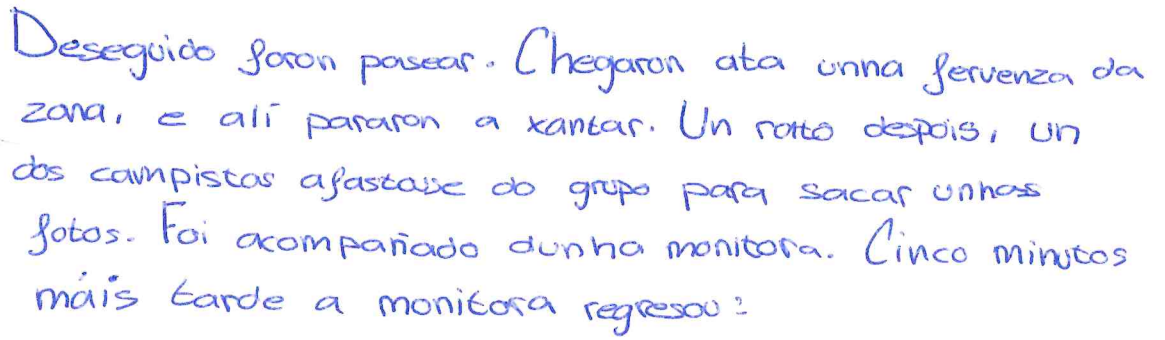 Deseguido foron pasear. Chegaron ata unna fervenza da
zona, e alí pararon a xantar. Un ratto despois, un
dos campistas afastouse do grupo para sacar unhas
fotos. Foi acompañado dunha monitora. Cinco minutos
máis tarde a monitora regresou: